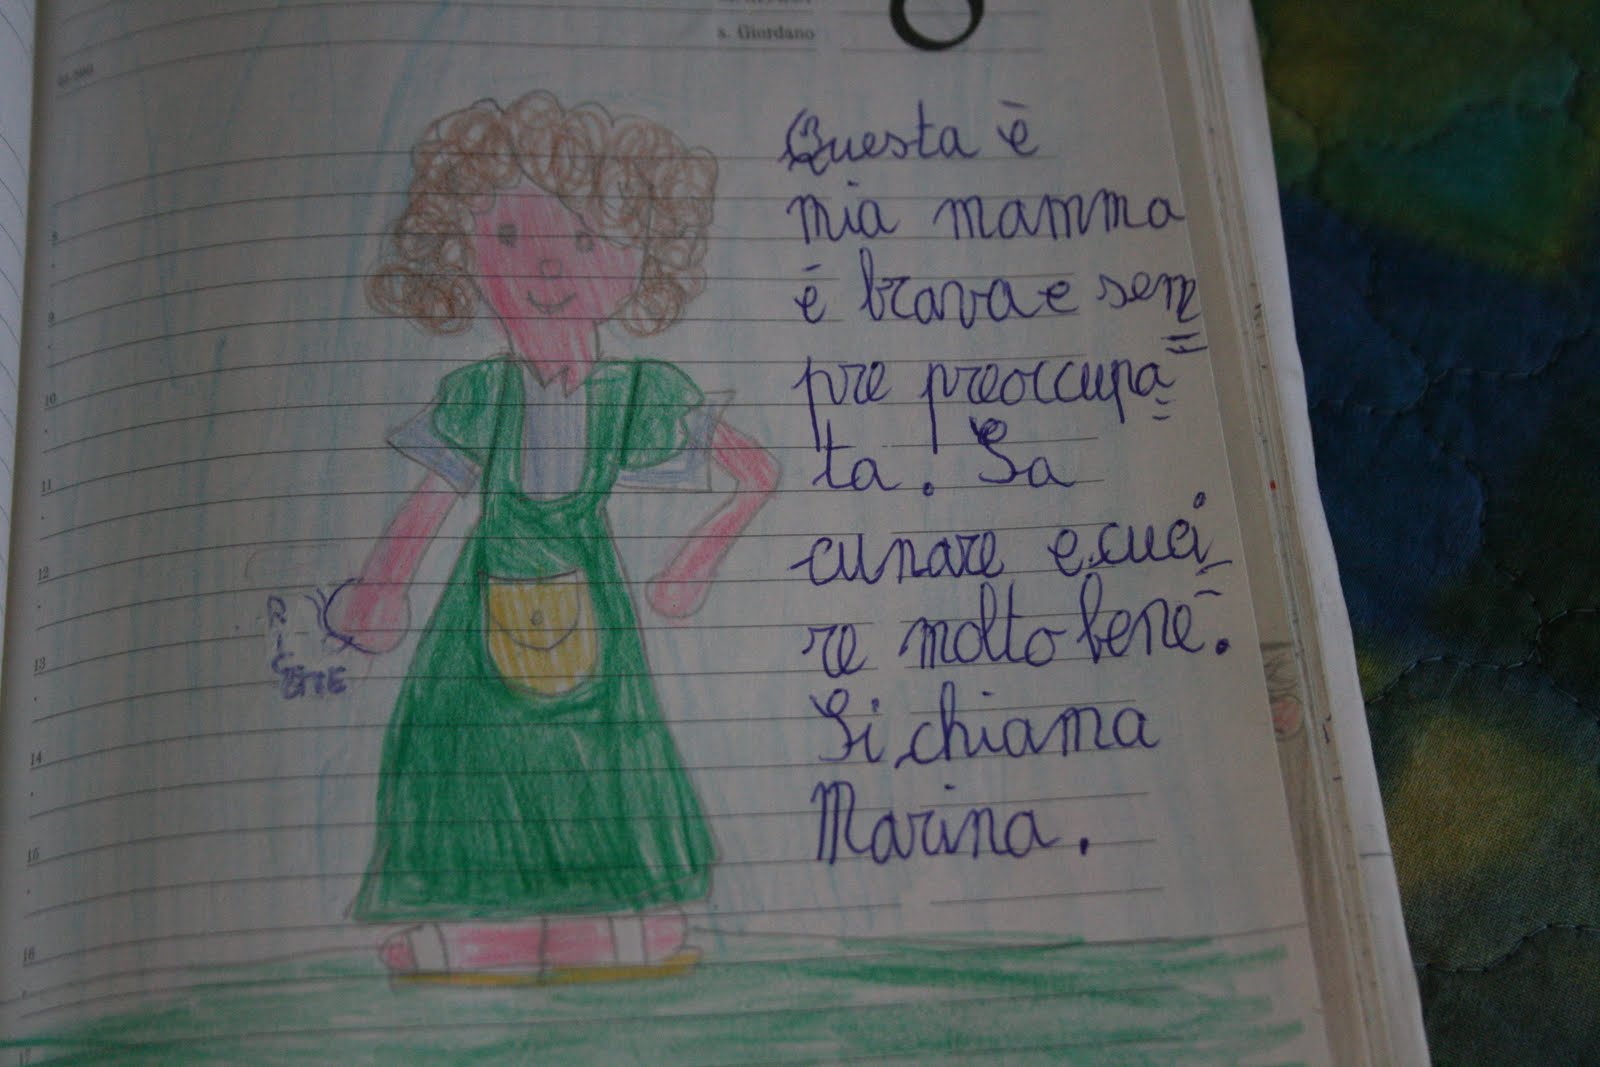 s. Giordano
8
9
10
11
12
13
14
15
16
17
Questa è
mia mamma
è brava e sem=
pre preoccupa=
ta. Sa
cunare e cuci=
re molto bene.
Si chiama
Marina.
RICETTE